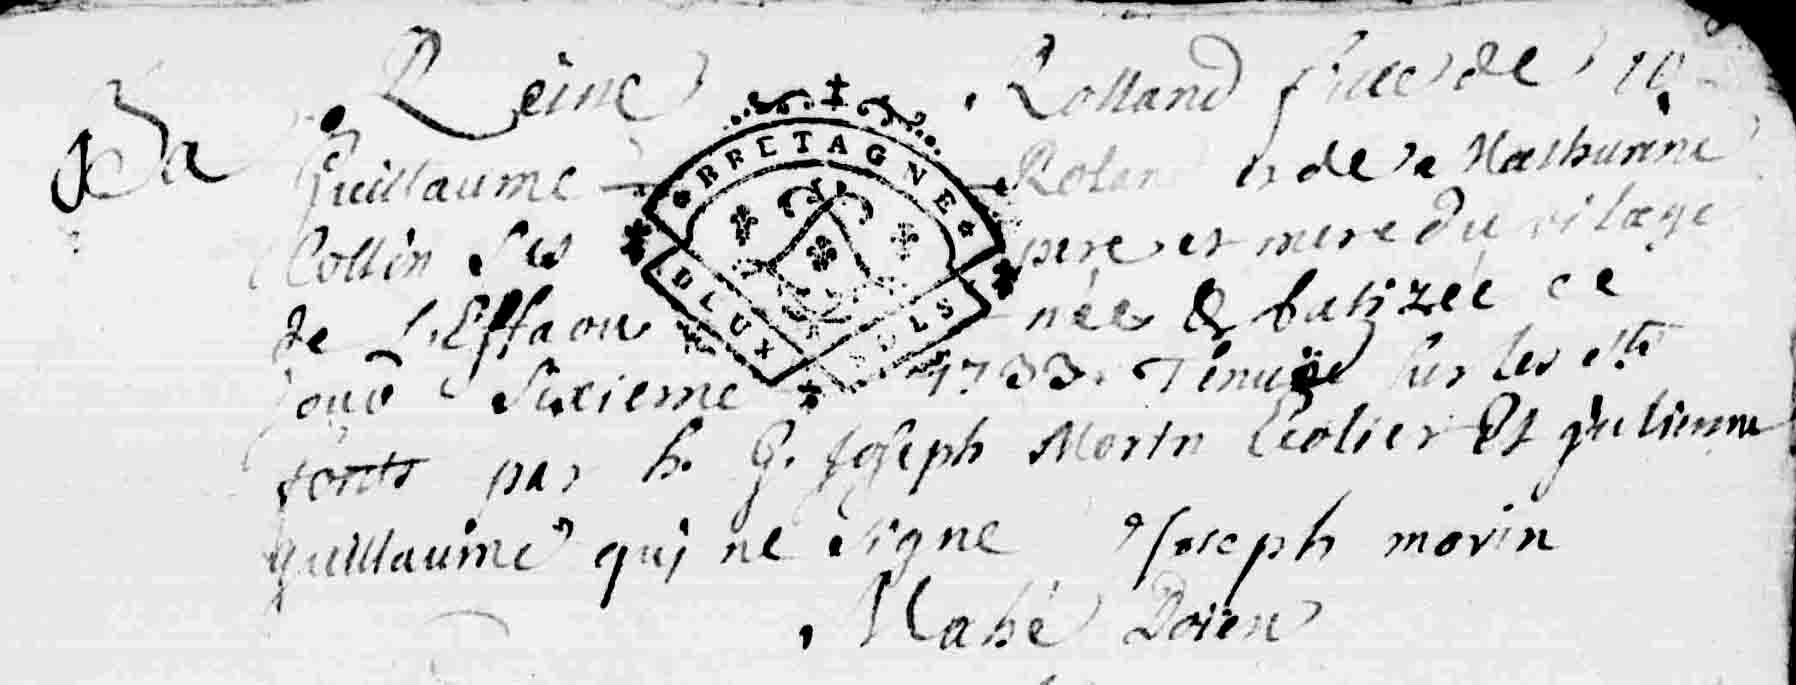 Ba
Reine Rolland fille de
Guillaume Rolan et de Mathurine
Collin ses pere et mere du vilage
de née & batizée ce
jour sixieme 1733. Tenuë sur les sts
fonts par h. g. joseph Morin Ecolier Et julienne
guillaume qui ne signe joseph morin
Mahé Doien
BRETAGNE
DEUX SOLS